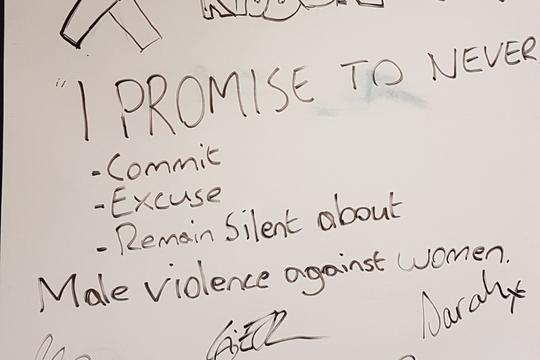 RIBBON
"I PROMISE TO NEVER
- Commit
- Excuse
- Remain Silent about
Male violence against women.
Sarah x